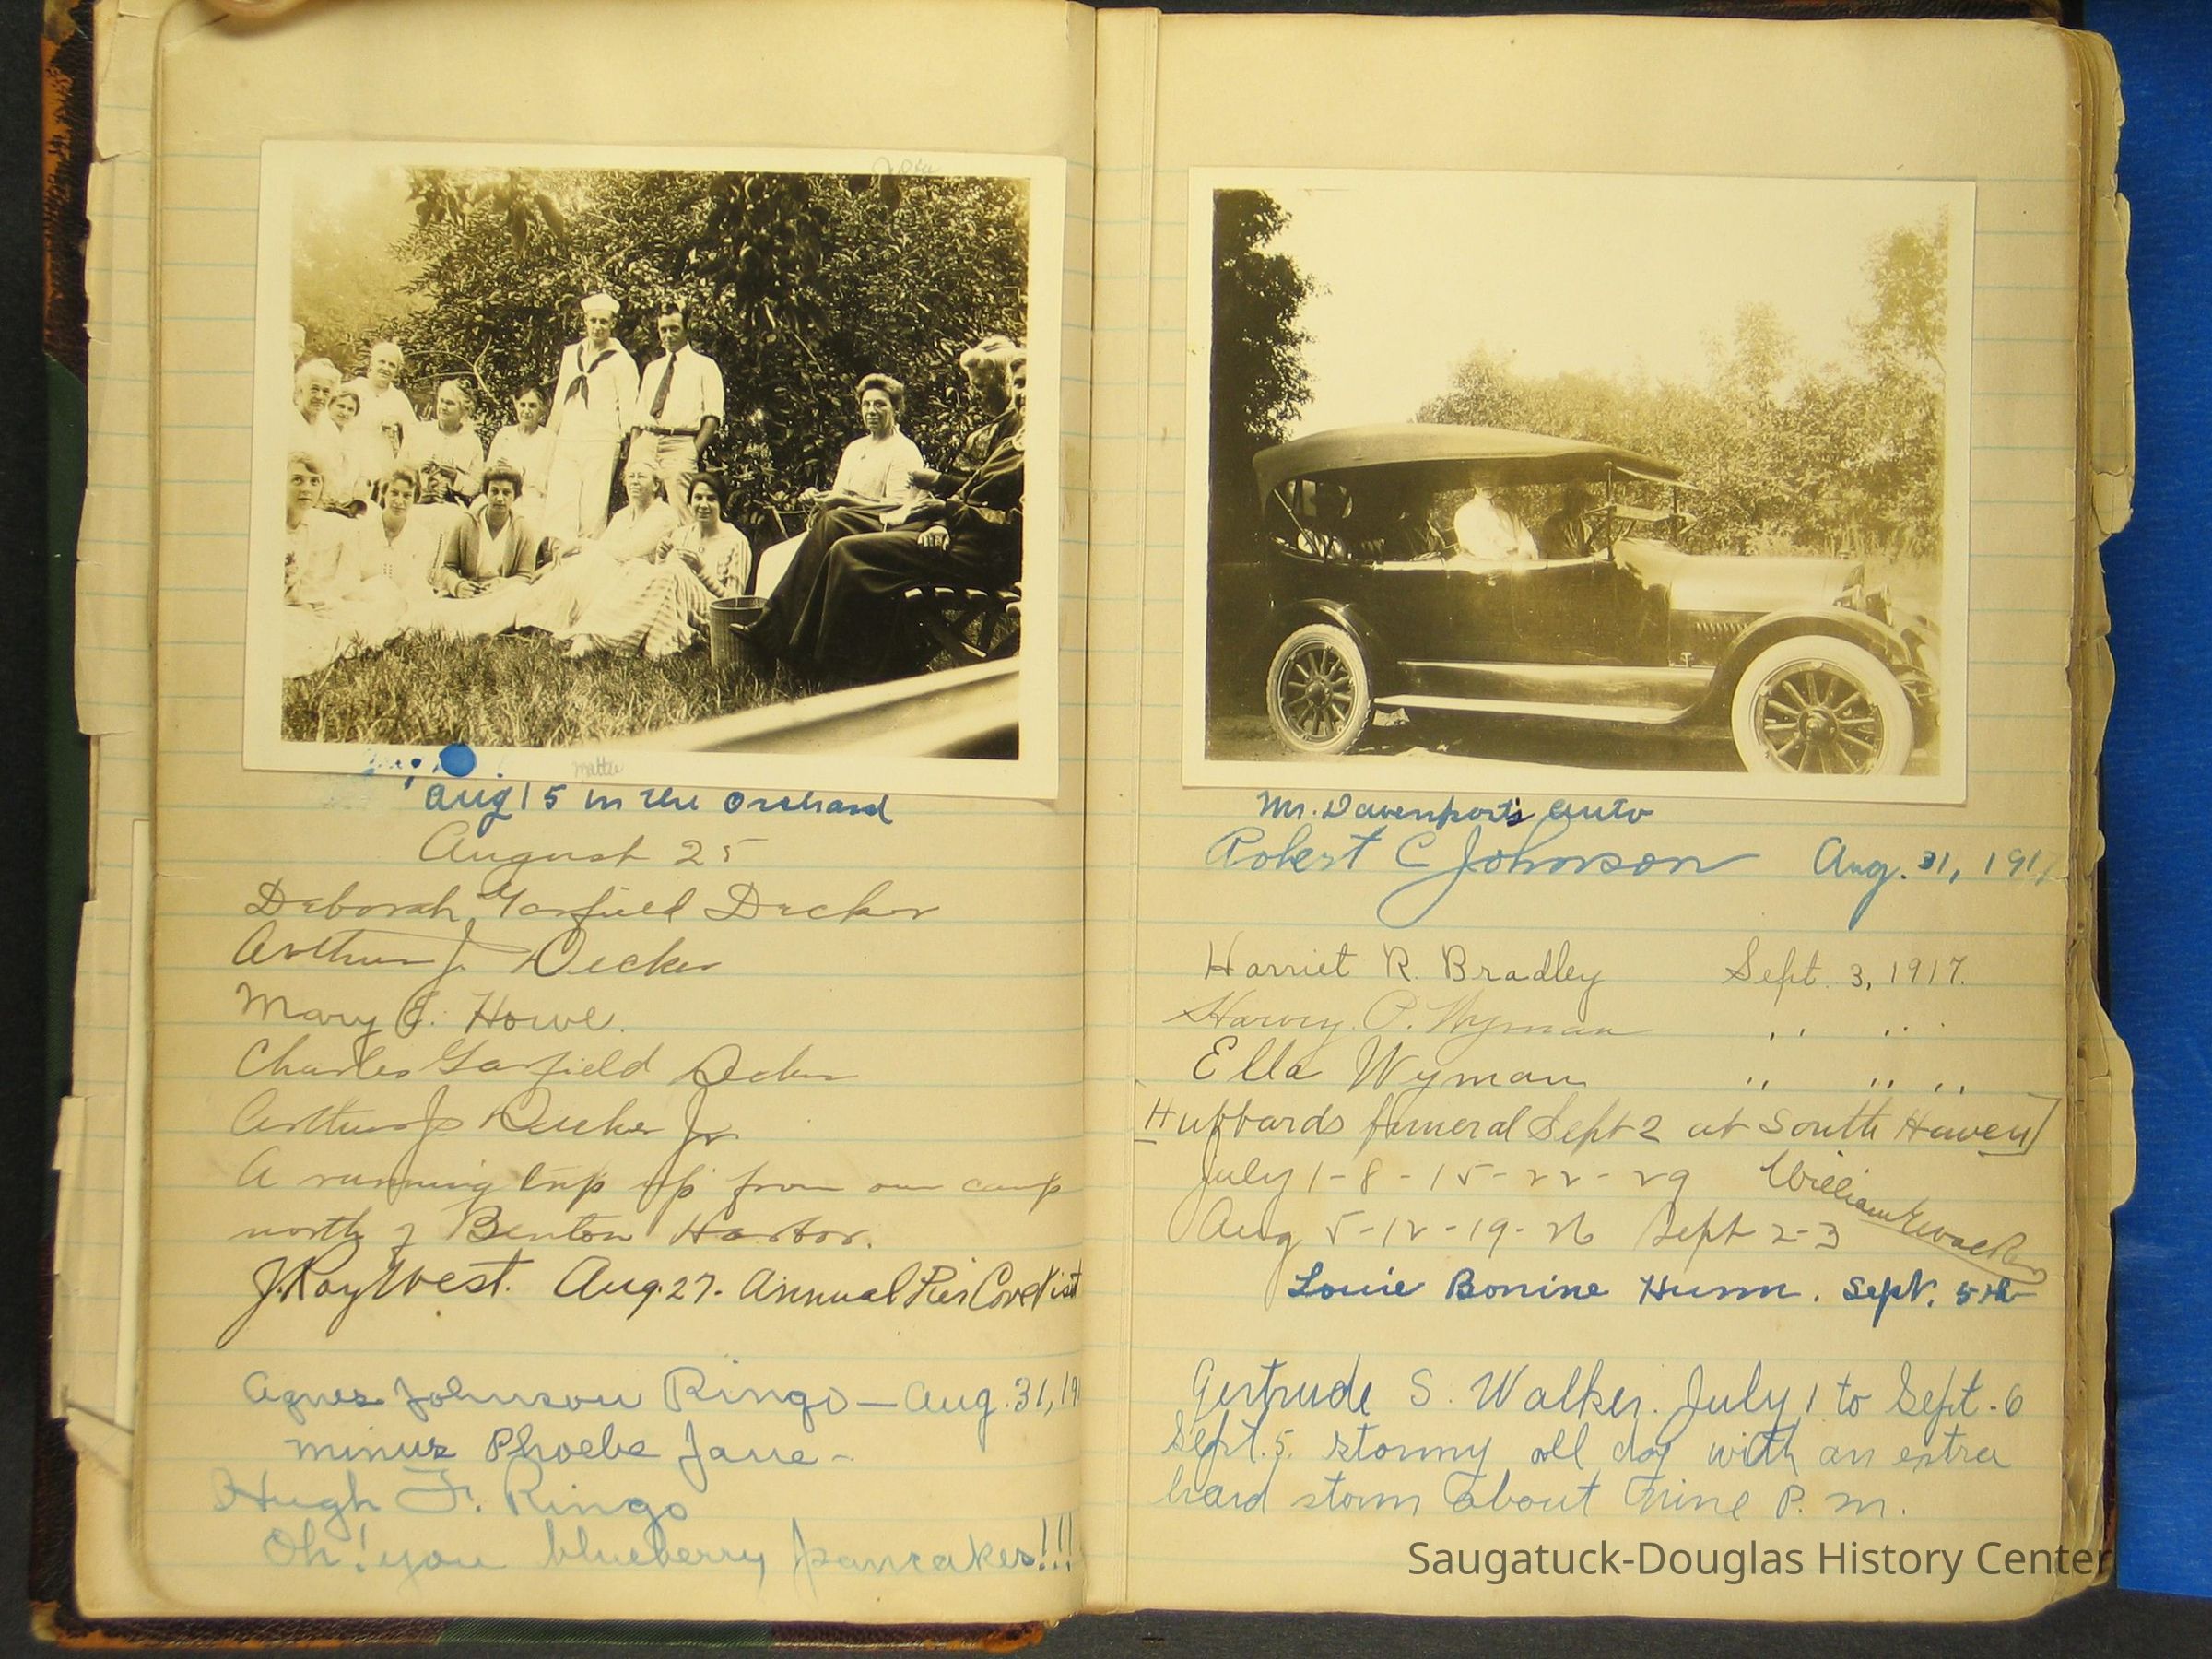 Mattie
Aug 15 in the Orchard
August 25
Deborah Garfield Decker
Arthur J. Decker
Mary E. Howe.
Charles Garfield Decker
Arthur J. Decker Jr
A running trip up from our camp
north of Benton Harbor.
J. Ray West. Aug. 27. Annual Pier Cove Visit
Agnes Johnson Ringo — Aug. 31, 19
minus Phoebe Jane -
Hugh F. Ringo
Oh! you blueberry pancakes!!!
Mr. Davenport's auto
Robert C Johnson Aug. 31, 1917
Harriet R. Bradley Sept. 3, 1917.
Harvey P. Wyman " "
Ella Wyman " " "
[Hubbards funeral Sept 2 at South Haven]
July 1-8-15-22-29 William
Aug 5-12-19-26 Sept 2-3
Louie Bonine Hunn. Sept. 5th
Gertrude S. Walker. July 1 to Sept. 6
Sept. 5. stormy all day with an extra
hard storm about nine P. M.
Saugatuck-Douglas History Center